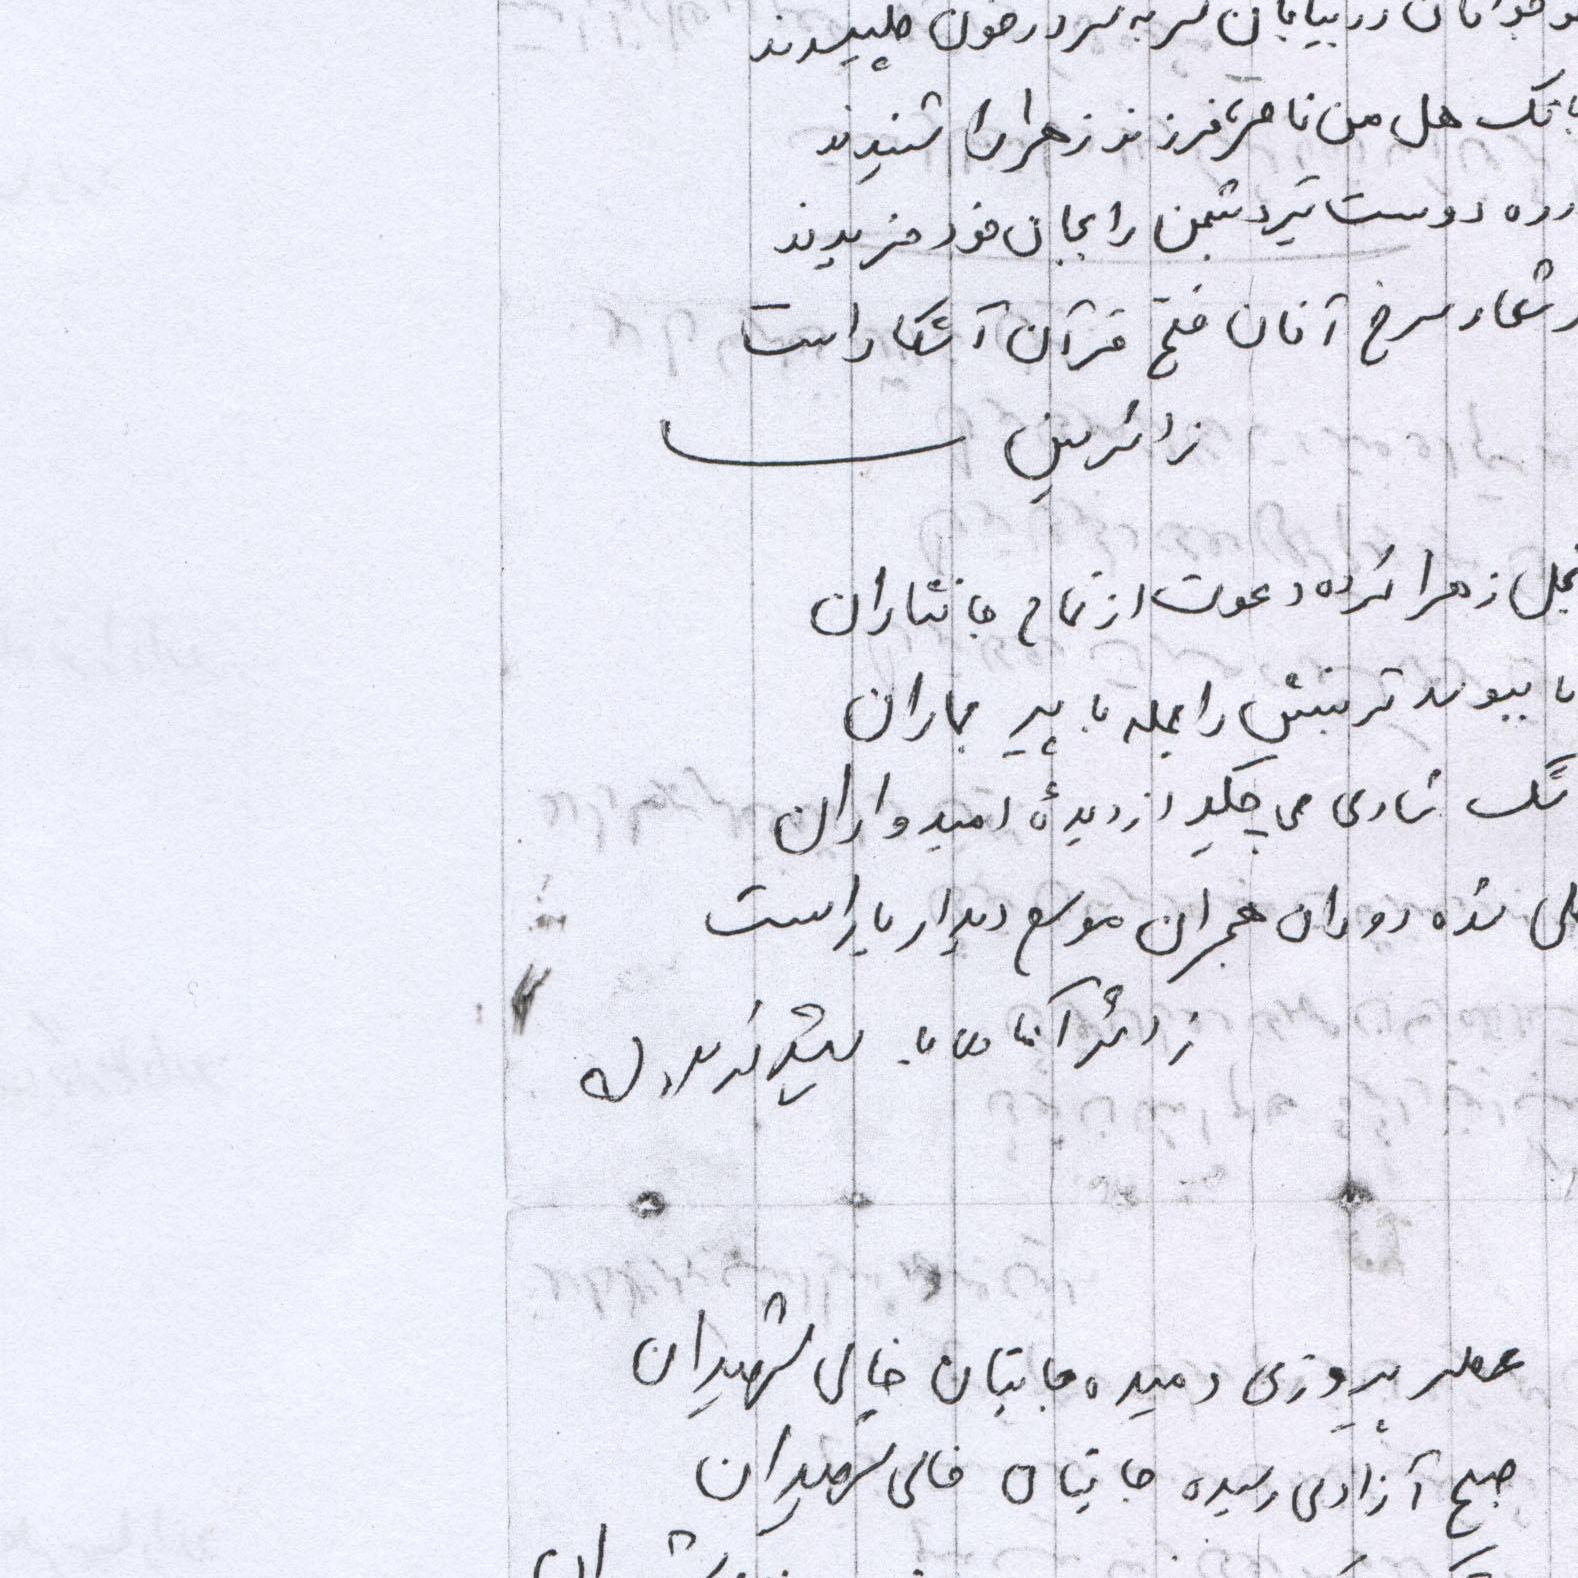 جوانان در بیابان سر به سر در خون طپیدند
بانگ هل من ناصر فرزند زهرا را شنیدند
ره دوست تیر دشمن را بجان خود خریدند
شعار سرخ آنان فتح قرآن آشکار است
زائرین
نجل زهرا کرده دعوت از تمام جانثاران
تا ببوسد تربتش را جمله با پیر جماران
شک شادی می چکد از دیدهٔ امیدواران
طی شده دوران هجران موسم دیدار یار است
زائر آقا
عطر پیروزی دمیده جایتان خالی شهیدان
صبح آزادی رسیده جایتان خالی شهیدان